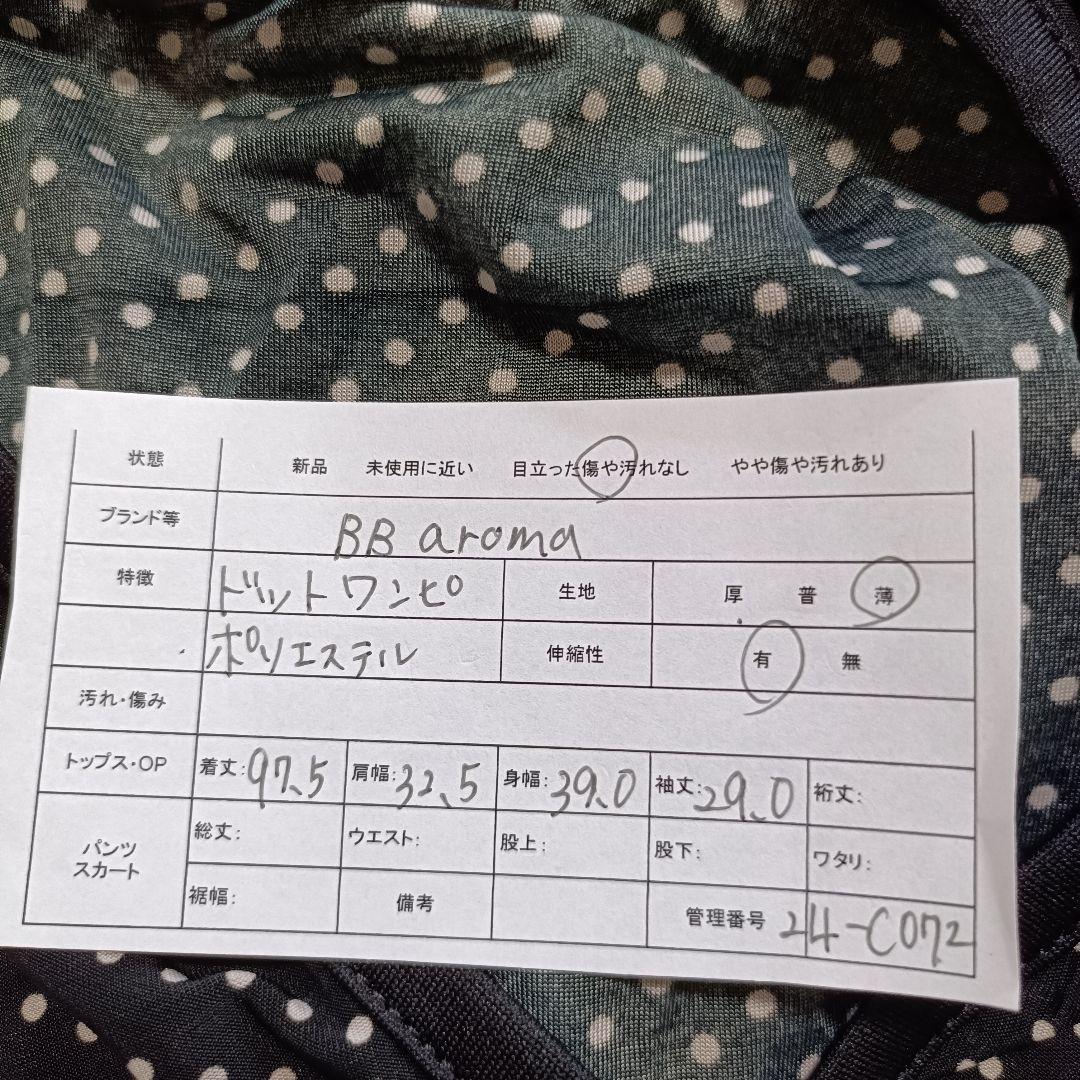 状態 新品 未使用に近い 目立った傷や汚れなし やや傷や汚れあり
ブランド等 BB aroma
特徴 ドットワンピ 生地 厚 普 薄
ポリエステル 伸縮性 有 無
汚れ・傷み
トップス・OP 着丈:97.5 肩幅:32.5 身幅:39.0 袖丈:29.0 裄丈:
パンツ スカート 総丈: ウエスト: 股上: 股下: ワタリ:
裾幅: 備考 管理番号 24-C072